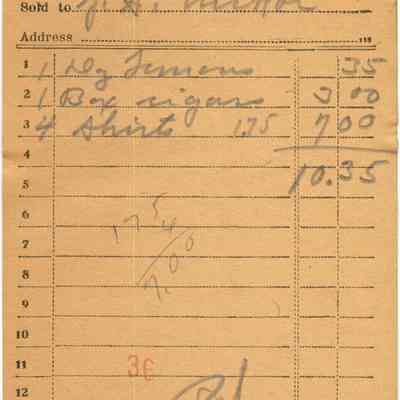 Sold to J. H.
Address
1 1 Dz Lemons 35
2 1 Box cigars 3 00
3 4 Shirts 1.75 7 00
4 10.35
5
6 1 7 5
7 4
8 7.00
9
10
11 36
12 Pd